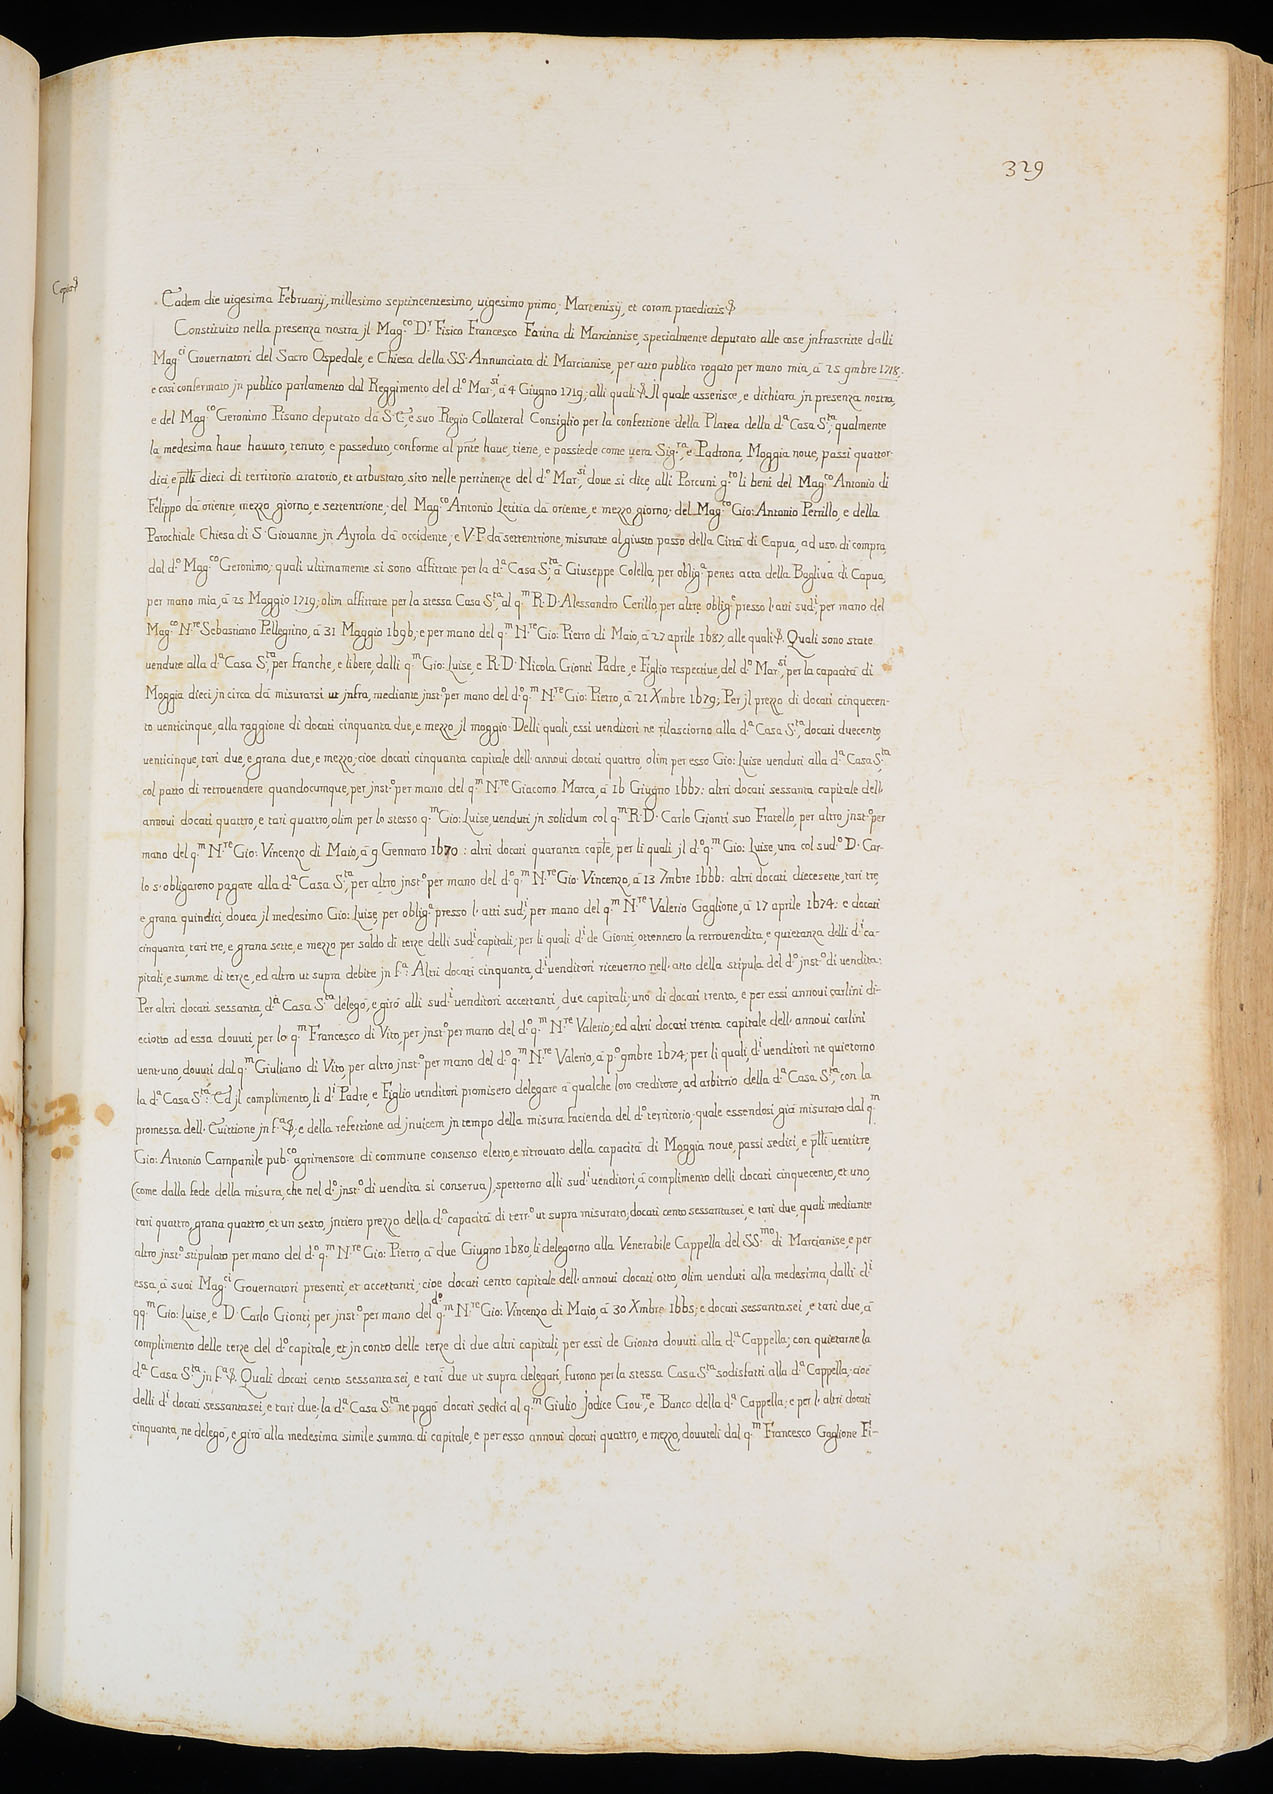 329
Copia
Eadem die uigesima Februarij, millesimo septincentesimo, uigesimo primo; Martenisij, et coram praedictis &
Constituito nella presenza nostra jl Mag.co D.r Fisico Francesco Farina di Marcianise, specialmente deputato alle cose jnfrascritte dalli
Mag.ci Gouernatori del Sacro Ospedale, e Chiesa della SS. Annunciata di Marcianise, per atto publico rogato per mano mia, à 25 9mbre 1718;
e così confermato jn publico parlamento dal Reggimento del d.o Mar.si, à 4 Giugno 1719; alli quali & Jl quale asserisce, e dichiara jn presenza nostra,
e del Mag.co Geronimo Pisano deputato dà S. E, e suo Regio Collateral Consiglio per la confettione della Platea della d.a Casa S.ta; qualmente
la medesima haue hauuto, tenuto, e posseduto, conforme al pnte haue, tiene, e possiede come uera Sig.ra, e Padrona, Moggia noue, passi quattor
dici, e plli dieci di territorio aratorio, et arbustato, sito nelle pertinenze del d.o Mar.si, doue si dice, alli Porcuni g.to li beni del Mag.co Antonio di
Felippo dà oriente, mezzo giorno, e settentrione; del Mag.co Antonio Letitia dà oriente, e mezzo giorno; del Mag.co Gio: Antonio Petrillo, e della
Parochiale Chiesa di S. Giouanne jn Ayrola dà occidente; e V. P. dà settentrione, misurate al giusto passo della Città di Capua, ad uso di compra,
dal d.o Mag.co Geronimo; quali ultimamente si sono affittate per la d.a Casa S.ta à Giuseppe Colella, per oblig.a penes acta della Bagliua di Capua,
per mano mia, à 25 Maggio 1719; olim affittate per la stessa Casa S.ta, al q.m R. D. Alessandro Cerillo, per altre oblig.e presso l'atti sud.i, per mano del
Mag.co N.re Sebastiano Pellegrino, à 31 Maggio 1696; e per mano del q.m N.re Gio: Pietro di Maio, à 27 aprile 1687, alle quali &. Quali sono state
uendute alla d.a Casa S.ta, per franche, e libere, dalli q.m Gio: Luise, e R. D. Nicola Gionti Padre, e Figlio respectiue, del d.o Mar.si, per la capacità di
Moggia dieci, jn circa dà misurarsi ut jnfra, mediante jnst.o per mano del d.o q.m N.re Gio: Pietro, à 21 Xmbre 1679; Per jl prezzo di docati cinquecen-
to uenticinque, alla raggione di docati cinquanta due, e mezzo jl moggio. Delli quali, essi uenditori ne rilasciorno alla d.a Casa S.ta, docati duecento
uenticinque, tari due, e grana due, e mezzo; cioè docati cinquanta capitale dell'annoui docati quattro, olim per esso Gio: Luise uenduti alla d.a Casa S.ta
col patto di retrouendere quandocumque, per jnst.o per mano del q.m N.re Giacomo Marca, à 16 Giugno 1667: altri docati sessanta capitale dell'
annoui docati quattro, e tari quattro, olim per lo stesso q.m Gio: Luise, uenduti jn solidum col q.m R. D. Carlo Gionti suo Fratello, per altro jnst.o per
mano del q.m N.re Gio: Vincenzo di Maio, à 9 Gennaro 1670: altri docati quaranta caple, per li quali jl d.o q.m Gio: Luise, una col sud.o D. Car-
lo s'obligarono pagare alla d.a Casa S.ta, per altro jnst.o per mano del d.o q.m N.re Gio: Vincenzo, à 13 7mbre 1666: altri docati diecesette, tari trè,
e grana quindici, douea jl medesimo Gio: Luise, per oblig.a presso l'atti sud.i, per mano del q.m N.re Valerio Gaglione, à 17 aprile 1674: e docati
cinquanta, tari tre, e grana sette, e mezzo per saldo di terze delli sud.i capitali; per li quali d.i de Gionti, ottennero la retrouendita, e quietanza delli d.i ca-
pitali, e summe di terze, ed altro ut supra debite jn f.a: Altri docati cinquanta, d.i uenditori riceuerno nell'atto della stipula del d.o jnst.o di uendita:
Per altri docati sessanta, d.a Casa S.ta delegò, e girò alli sud.i uenditori accettanti, due capitali; uno di docati trenta, e per essi annoui carlini di-
eciotto ad essa douuti, per lo q.m Francesco di Vito, per jnst.o per mano del d.o q.m N.re Valerio; ed altri docati trenta capitale dell'annoui carlini
uent'uno, douuti dal q.m Giuliano di Vito, per altro jnst.o per mano del d.o q.m N.re Valerio, à p.o 9mbre 1674; per li quali, d.i uenditori ne quietorno
la d.a Casa S.ta: Ed jl complimento, li d.i Padre, e Figlio uenditori promisero delegare à qualche loro creditore, ad arbitrio della d.a Casa S.ta, con la
promessa dell'Euittione jn f.a &; e della refettione ad jnuicem jn tempo della misura facienda del d.o territorio; quale essendosi già misurato dal q.m
Gio: Antonio Campanile pub.co agrimensore di commune consenso eletto, e ritrouato della capacità di Moggia noue, passi sedici, e plli uentitre,
(come dalla fede della misura, che nel d.o jnst.o di uendita si conserua), spettorno alli sud.i uenditori, à complimento delli docati cinquecento, et uno,
tari quattro, grana quattro, et un sesto, jntiero prezzo della d.a capacità di terr.o ut supra misurato; docati cento sessantasei, e tari due, quali mediante
altro jnst.o stipulato per mano del d.o q.m N.re Gio: Pietro, à due Giugno 1680, li delegorno alla Venerabile Cappella del SS.mo di Marcianise, e per
essa, à suoi Mag.ci Gouernatori presenti, et accettanti; cioè docati cento capitale dell'annoui docati otto, olim uenduti alla medesima, dalli d.i
qq.m Gio: Luise, e D. Carlo Gionti, per jnst.o per mano del d.o q.m N.re Gio: Vincenzo di Maio, à 30 Xmbre 1665; e docati sessantasei, e tari due, à
complimento delle terze del d.o capitale, et jn conto delle terze di due altri capitali, per essi de Gionto douuti alla d.a Cappella; con quietarne la
d.a Casa S.ta jn f.a &. Quali docati cento sessantasei, e tari due ut supra delegati, furono per la stessa Casa S.ta sodisfatti alla d.a Cappella; cioè
delli d.i docati sessantasei, e tari due, la d.a Casa S.ta ne pagò docati sedici al q.m Giulio Jodice Gou.re, e Banco della d.a Cappella; e per l'altri docati
cinquanta, ne delegò, e girò alla medesima simile summa di capitale, e per esso annoui docati quattro, e mezzo, douuteli dal q.m Francesco Gaglione Fi-